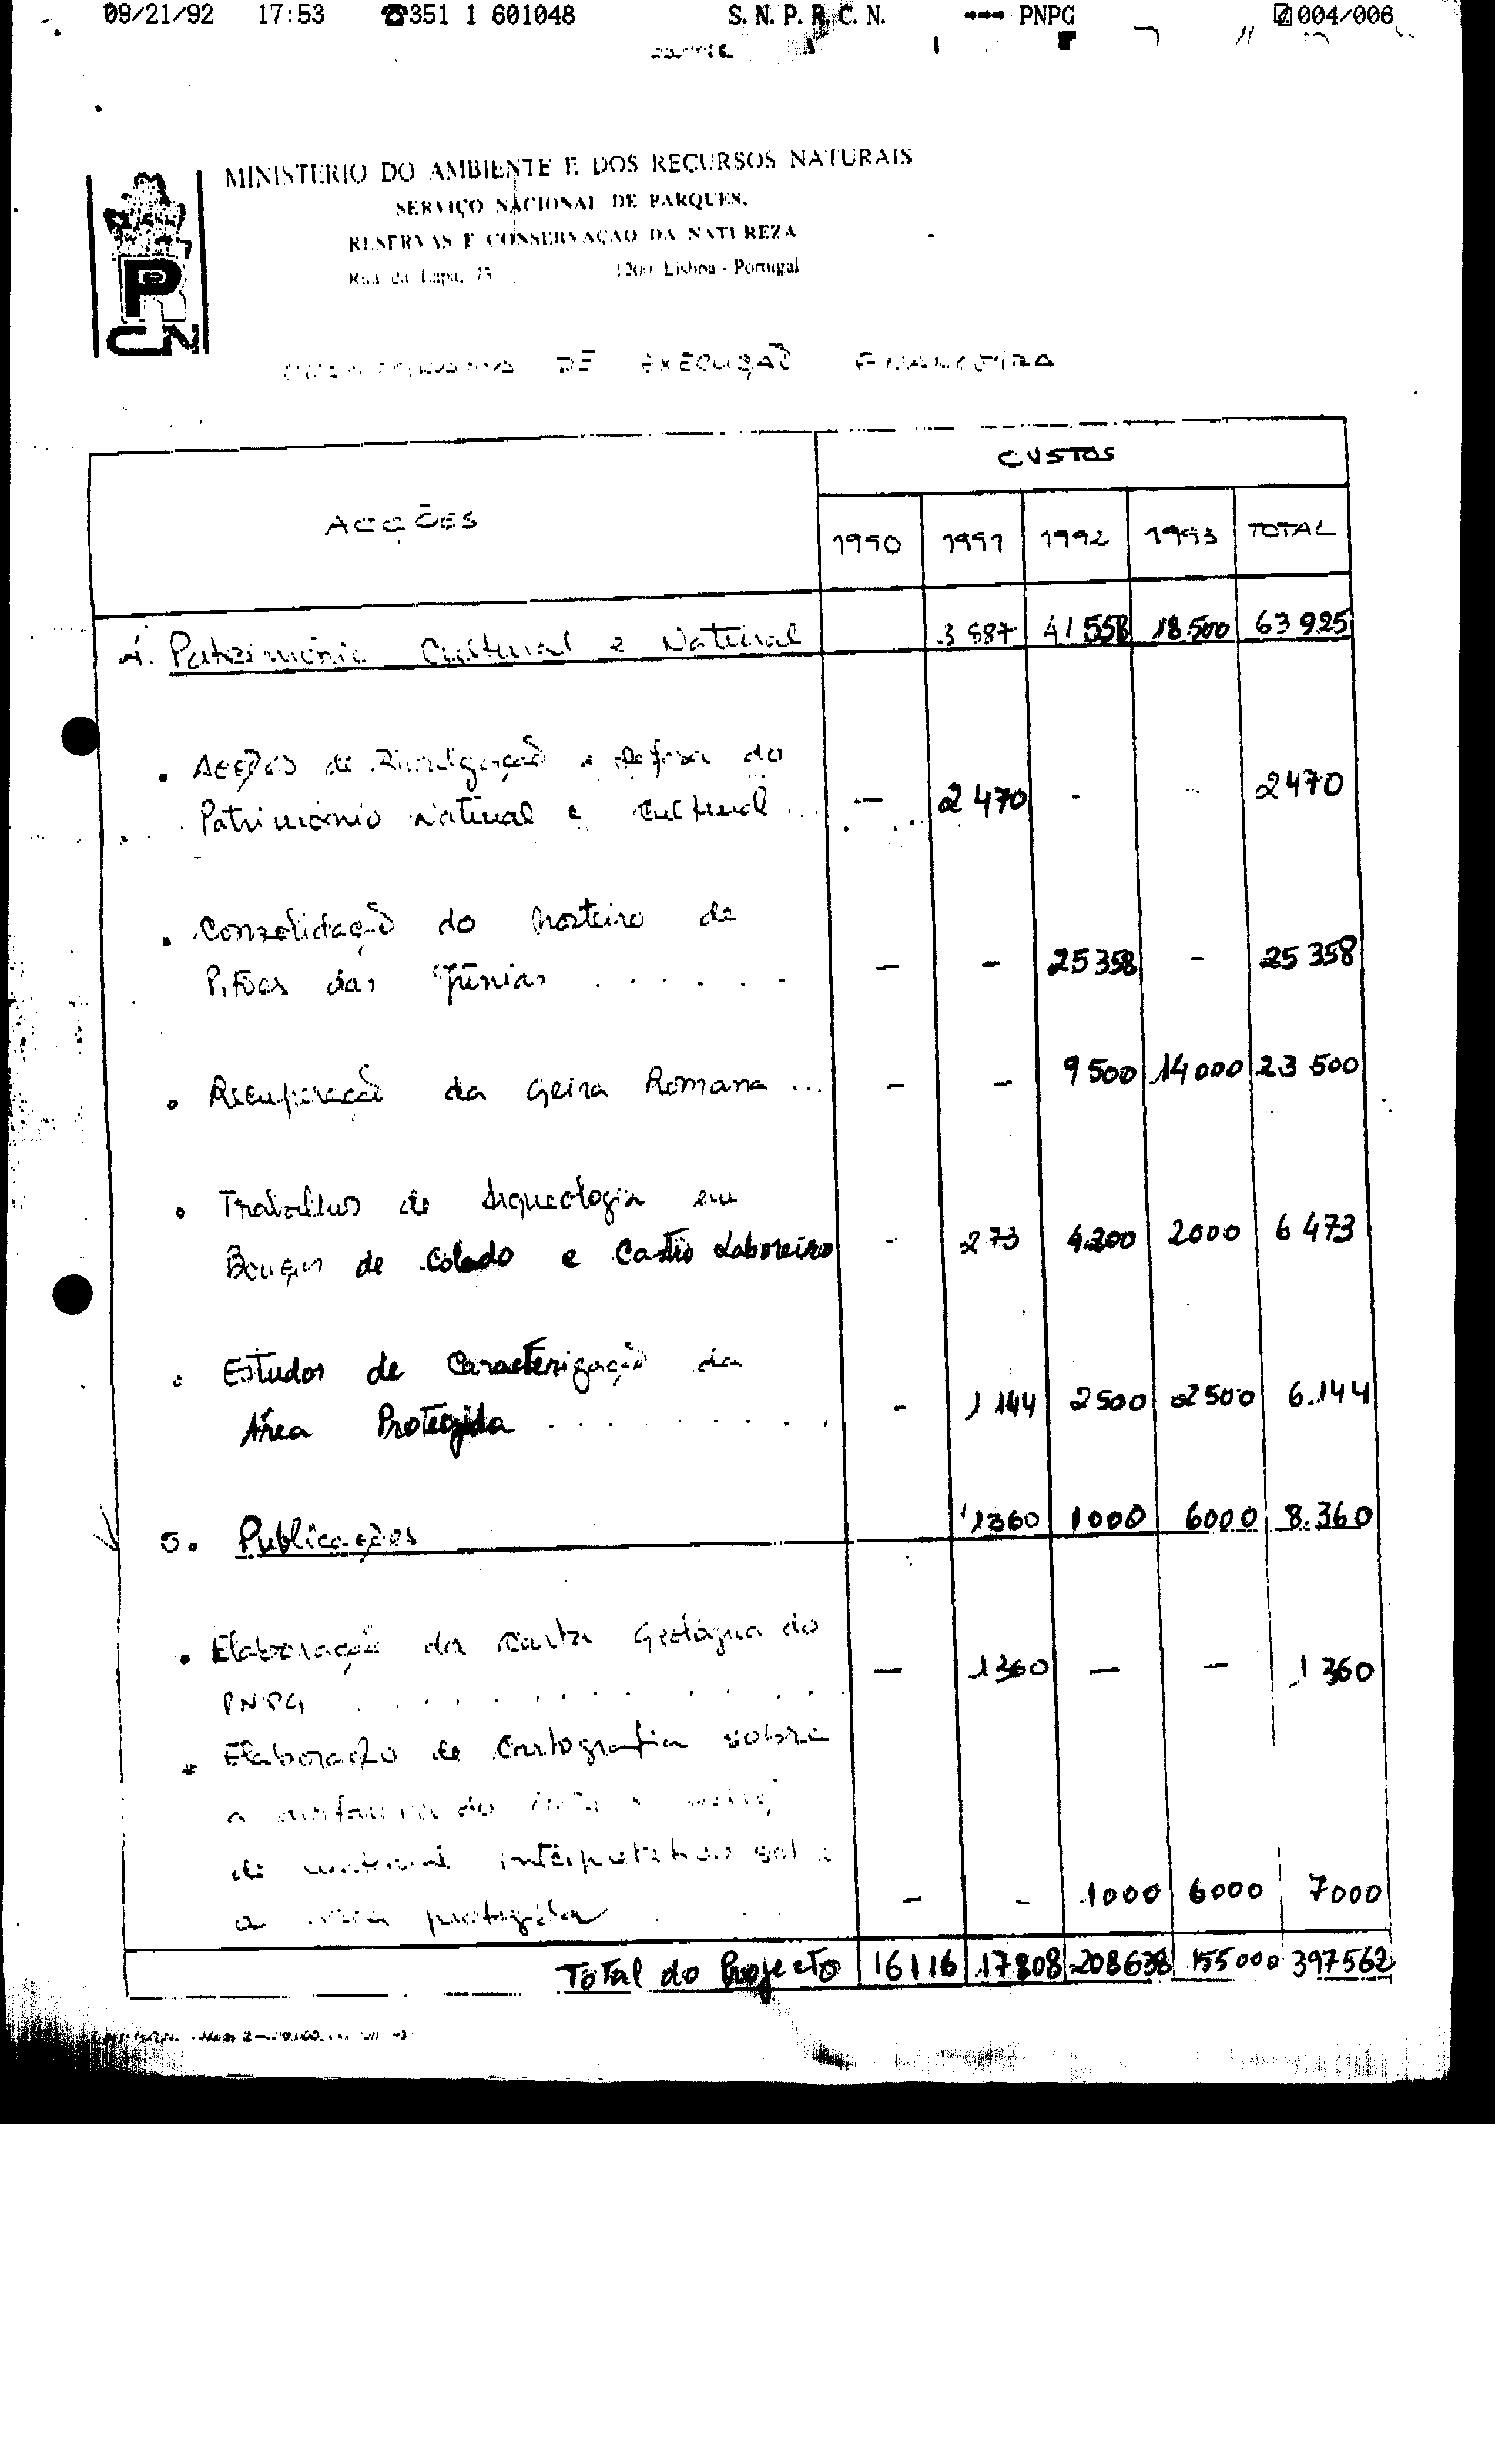 09/21/92 17:53 ☎351 1 601048 S.N.P.R.C.N. →→→ PNPG 004/006
MINISTERIO DO AMBIENTE E DOS RECURSOS NATURAIS
SERVIÇO NACIONAL DE PARQUES,
RESERVAS E CONSERVAÇAO DA NATUREZA
Rua da Lapa, 73 1200 Lisboa - Portugal
P
CN
DE EXECUÇÃO FINANCEIRA
CUSTOS
ACÇÕES
1990 1991 1992 1993 TOTAL
4. Património Cultural e Natural 3 887 41 558 18.500 63 925
• Acções de Divulgação e Defesa do
Património Natural e Cultural ... — 2 470 - - 2470
• Consolidação do Mosteiro de
Pitões das Júnias . . . . . . — — 25 358 - 25 358
• Recuperação da Geira Romana ... — — 9 500 14 000 23 500
• Trabalhos de Arqueologia em
de Colado e Castro Laboreiro - 273 4.200 2000 6 473
• Estudos de Caracterização da
Área Protegida . . . . . . . . . - 1 144 2500 2500 6.144
5. Publicações 1360 1000 6000 8.360
• Elaboração da Carta Geológica do
PNPG . . . . . . . . . . . — 1360 — — 1 360
• Elaboração de Cartografia sobre
a do
de material interpretativo sobre
a área protegida - - 1000 6000 7000
Total do Projecto 16116 17808 208638 155000 397562